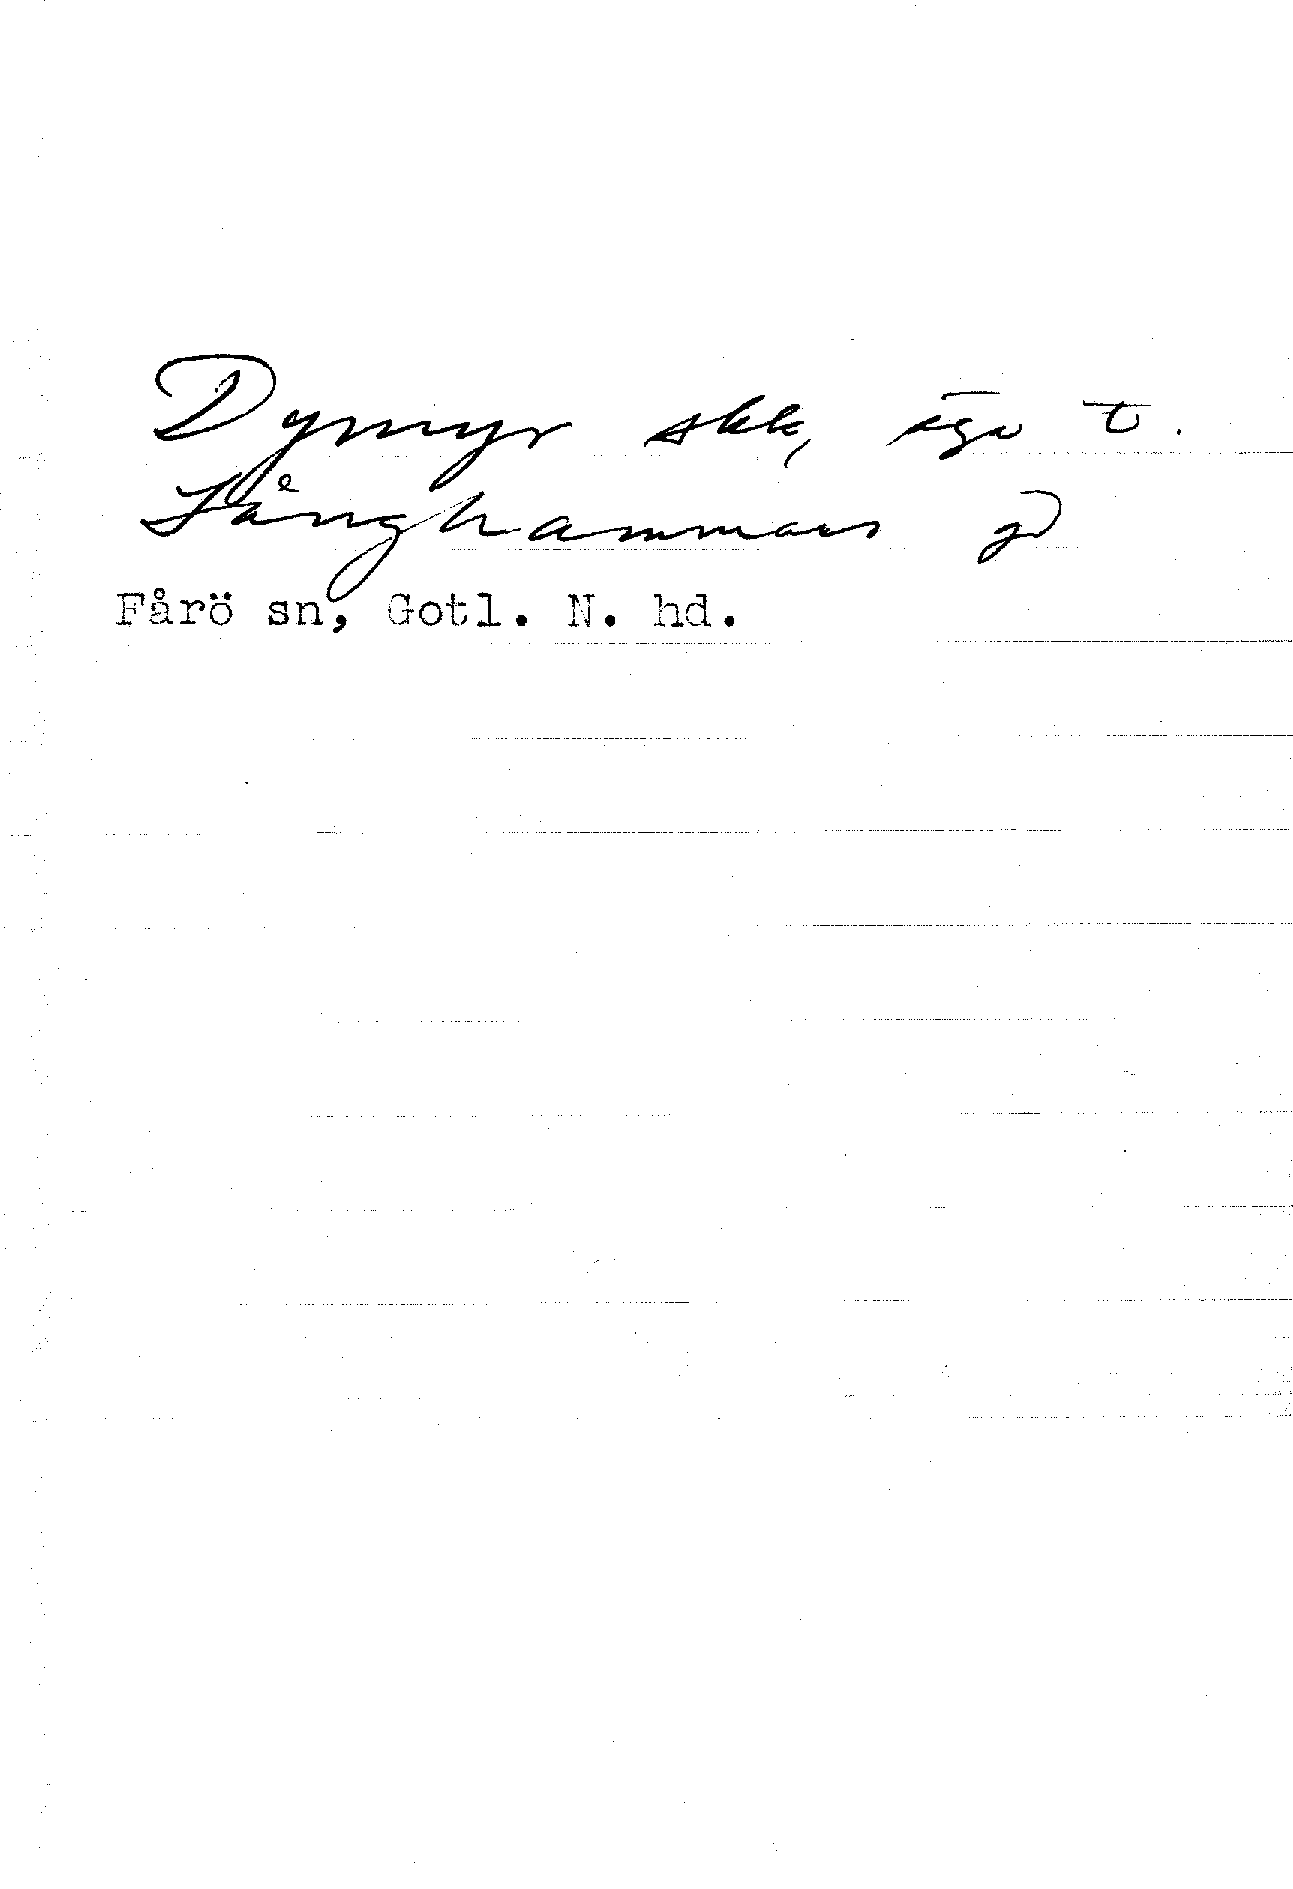 Dymyr skk, äga t.
Långhammars gd
Fårö sn, Gotl. N. hd.